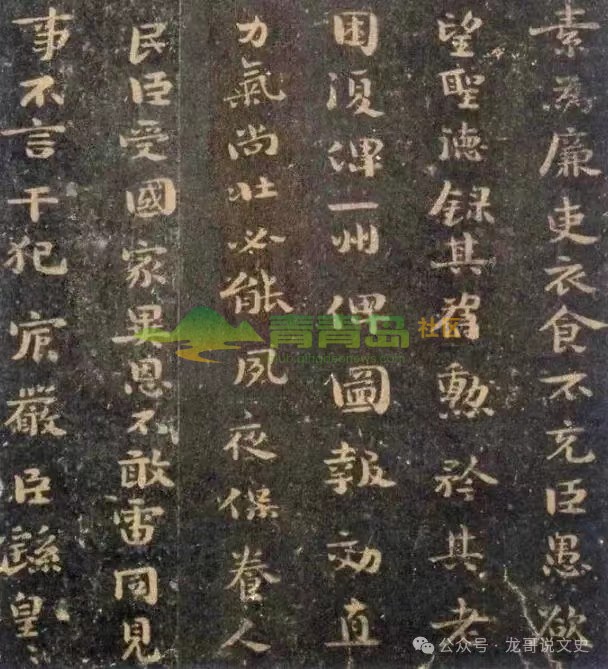 素為廉吏衣食不充臣愚欲
望聖德録其舊勲矜其老
困復俾一州俾圖報効直
力氣尚壯必能夙夜保養人
民臣受國家異恩不敢雷同見
事不言干犯宸嚴臣繇皇
青青岛社区
公众号·龙哥说文史